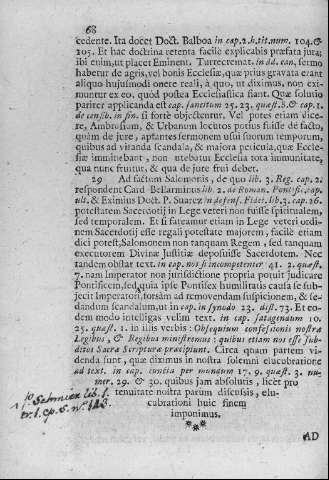 68
cedente. Ita docet Doct. Balboa in cap. 2. h. tit. num. 104. &
105. Et hac doctrina retenta facilè explicabis præfata jura;
ibi enim, ut placet Eminent. Turrecremat. in dd. can, sermo
habetur de agris, vel bonis Ecclesiæ, quæ prius gravata erant
aliquo hujusmodi onere reali, à quo, ut diximus, non exi-
muntur ex eo, quod postea Ecclesiastica fiant. Quæ solutio
pariter applicanda est cap. sancitum 25. 23. quæst. 8. & cap. 1.
de censib. in fin. si fortè objectentur. Vel potes etiam dice-
re, Ambrosium, & Urbanum locutos potius fuisse de facto,
quàm de jure, aptantes sermonem usui suorum temporum,
quibus ad vitanda scandala, & majora pericula, quæ Eccle-
siæ imminebant, non utebatur Ecclesia tota immunitate,
qua nunc fruitur, & qua de jure frui debet.
29 Ad factum Salomonis, de quo lib. 3. Reg. cap. 2.
respondent Card. Bellarminus lib. 2. de Roman. Pontific. cap.
ult. & Eximius Doct. P. Suarez in defens. Fidei, lib. 3. cap. 26.
potestatem Sacerdotij in Lege veteri non fuisse spiritualem,
sed temporalem. Et si fateamur etiam in Lege veteri ordi-
nem Sacerdotij esse regali potestate majorem, facilè etiam
dici potest, Salomonem non tanquam Regem, sed tanquam
executorem Divinæ Justitiæ deposuisse Sacerdotem. Nec
tandem obstat text. in cap. nos si incompetenter 41. 2. quæst.
7. nam Imperator non jurisdictione propria potuit judicare
Pontificem, sed quia ipse Pontifex humilitatis causa se sub-
jecit Imperatori, forsàm ad removendam suspicionem, & se-
dandum scandalum, ut in cap. in synodo 23. dist. 73. Et eo-
dem modo intelligas velim text. in cap. satagendum 10.
25. quæst. 1. in illis verbis: Obsequium confessionis nostræ
Legibus, & Regibus ministremus: quibus etiam nos esse sub-
ditos Sacræ Scripturæ præcipiunt. Circa quam partem vi-
denda sunt, quæ diximus in nostra solemni elucubratione
ad text. in cap. contia per mundum 17. 9. quæst. 3. nu-
mer. 29. & 30. quibus jam absolutis, licèt pro
tenuitate nostra parum discussis, elu-
cubrationi huic finem
imponimus.
***
AD
lib. 1.
cp. 5. n. 143.